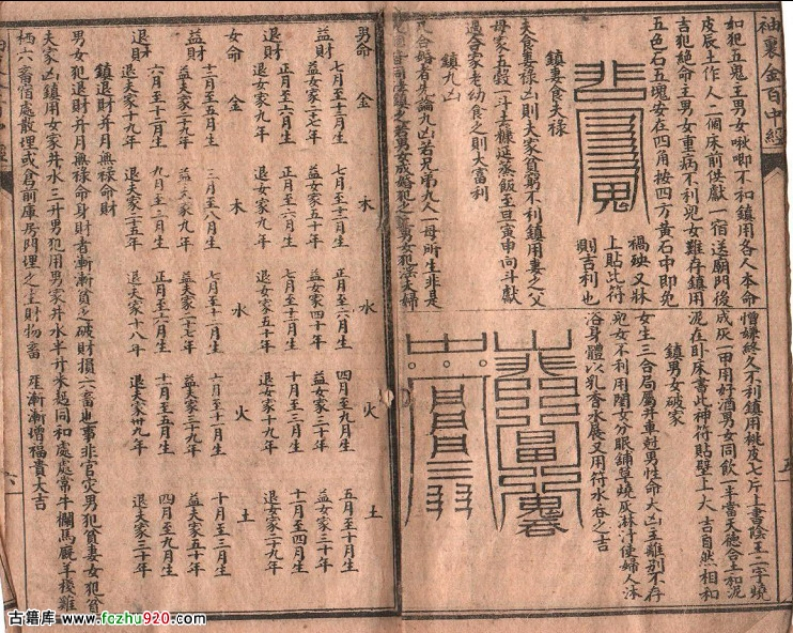 袖裏金百中經
如犯五鬼主男女啾唧不和鎮用各人本命
皮辰土作人二個床前供獻一宿送廟門後
吉犯絕命主男女重病不利兒女難存鎮用
五色石五塊安在四角按四方黃石中即免
禍殃又牀
上貼此符
則吉利也
鎮妻食夫祿
夫食妻祿凶則夫家貧窮不利鎮用妻之父
母家五穀一斗去糠延蒸飯至旦寅申向斗獻
過合家老幼食之則大富利
鎮九凶
凡合婚者先論九凶若兄弟九人一母所生非是
憎嫌終久不利鎮用桃皮七斤上書陰王二字燒
成灰一甲用好酒男女同飲一半當天德合土和泥
泥在卧床書此神符貼壁上大吉自然相和
鎮男女破家
女生三合局屬井車姓男性命大凶主難别不存
兒女不利用閨女分眠舖草燒灰淋汁使婦人沐
浴身體以乳香水晨又用符水吞之吉
男命 金 木 水 火 土
益財 七月至十二月生 七月至十二月生 正月至六月生 四月至九月生 五月至十月生
益女家二七年 益女家五十年 益女家四十年 益女家三十年 益女家三十年
退財 正月至六月生 正月至六月生 七月至十二月生 十月至三月生 十一月至四月生
退女家九年 退女家九年 退女家五十年 退女家十九年 退女家二十九年
女命 金 木 水 火 土
益財 十二月至五月生 三月至八月生 七月至十二月生 六月至十一月生 十月至三月生
益夫家三十九年 益夫家九年 益夫家二十七年 益夫家三十九年 益夫家五十年
退財 六月至十一月生 九月至二月生 正月至六月生 十二月至五月生 四月至九月生
退夫家十九年 退夫家三十五年 退夫家十八年 退夫家卅九年 退夫家三十年
鎮退財并月無祿命財
男女犯退財并月無祿命身財者漸漸貧乏破財損六畜也事非官灾男犯貧妻女犯貧
夫家凶鎮用女家井水三升男犯用男家井水半升米起同和處處常牛欄馬厩羊棧雞
栖六畜宿處散埋或倉前庫房門埋之主財物畜 産漸漸增福貴大吉
六
古籍库 www.fozhu920.com